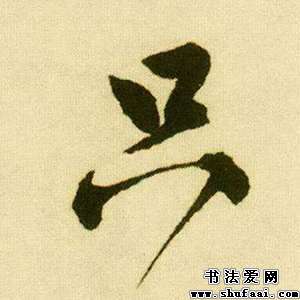 只
书法爱网
www.shufaai.com